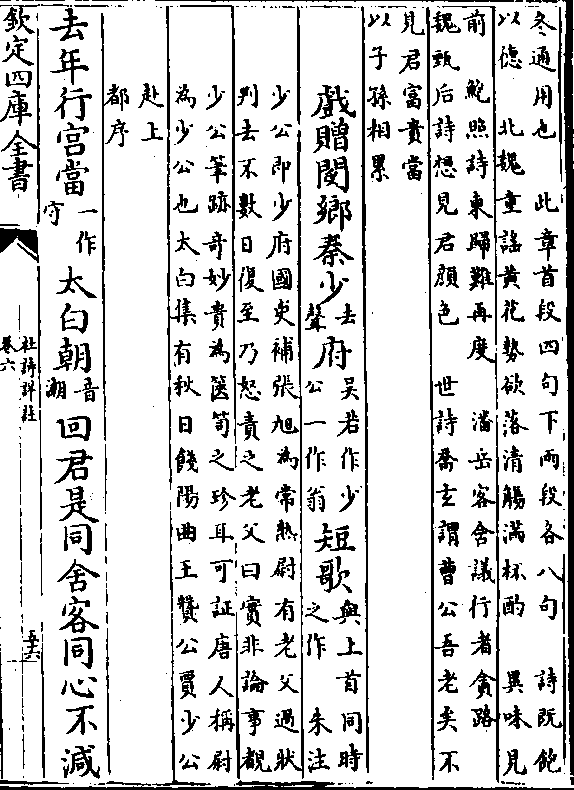 冬通用也　此章首段四句下兩段各八句　詩既飽
以德　北魏童謡黄花勢欲落清觴滿杯酌　異味見
前　鮑照詩東歸難再度　潘岳客舍議行者貪路
魏甄后詩想見君顔色　世詩喬𤣥謂曹公吾老矣不
見君富貴當
以子孫相累
戲贈閿鄉秦少去聲府吳若作少公一作翁短歌與上首同時之作　朱注
少公即少府國吏補張旭為常熟尉有老父過狀
判去不數日復至乃怒責之老父曰實非論事覩
少公筆跡竒妙貴為篋笥之珍耳可証唐人稱尉
為少公也太白集有秋日餞陽曲王贊公賈少公
赴上
都序
去年行宫當一作守太白朝音潮回君是同舍客同心不減
欽定四庫全書
杜詩詳註
卷六
五十六